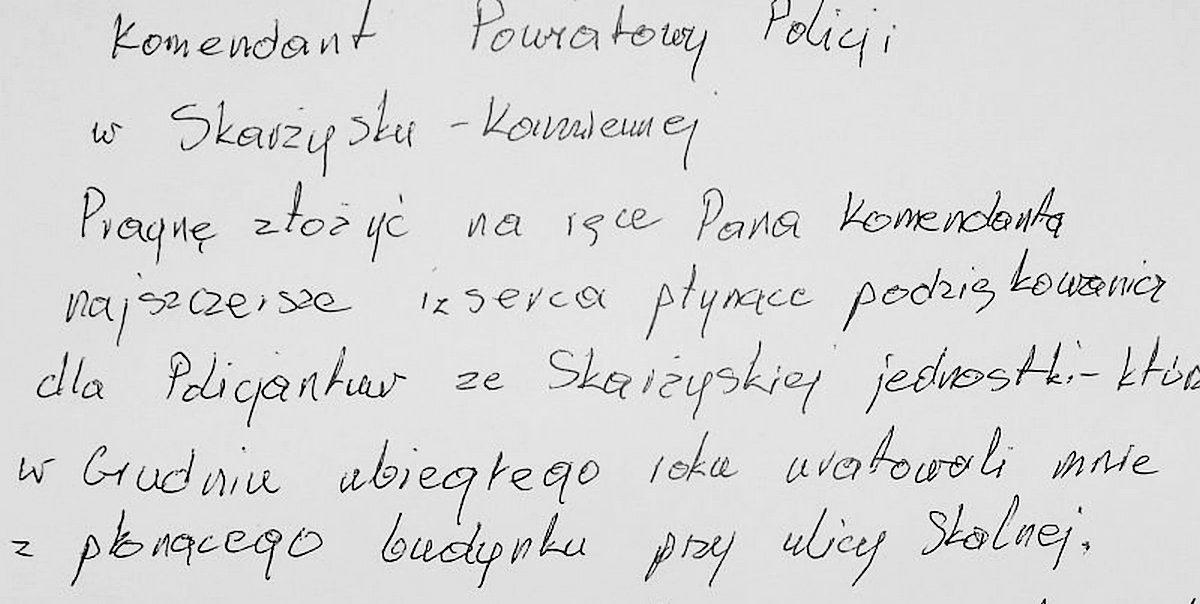 Komendant Powiatowy Policji
w Skarżysku - Kamiennej
Pragnę złożyć na ręce Pana Komendanta
najszczersze i z serca płynące podziękowania
dla Policjantuw ze Skarżyskiej jednostki - któr
w Grudniu ubiegłego roku uratowali mnie
z płonącego budynku przy ulicy Skalnej.